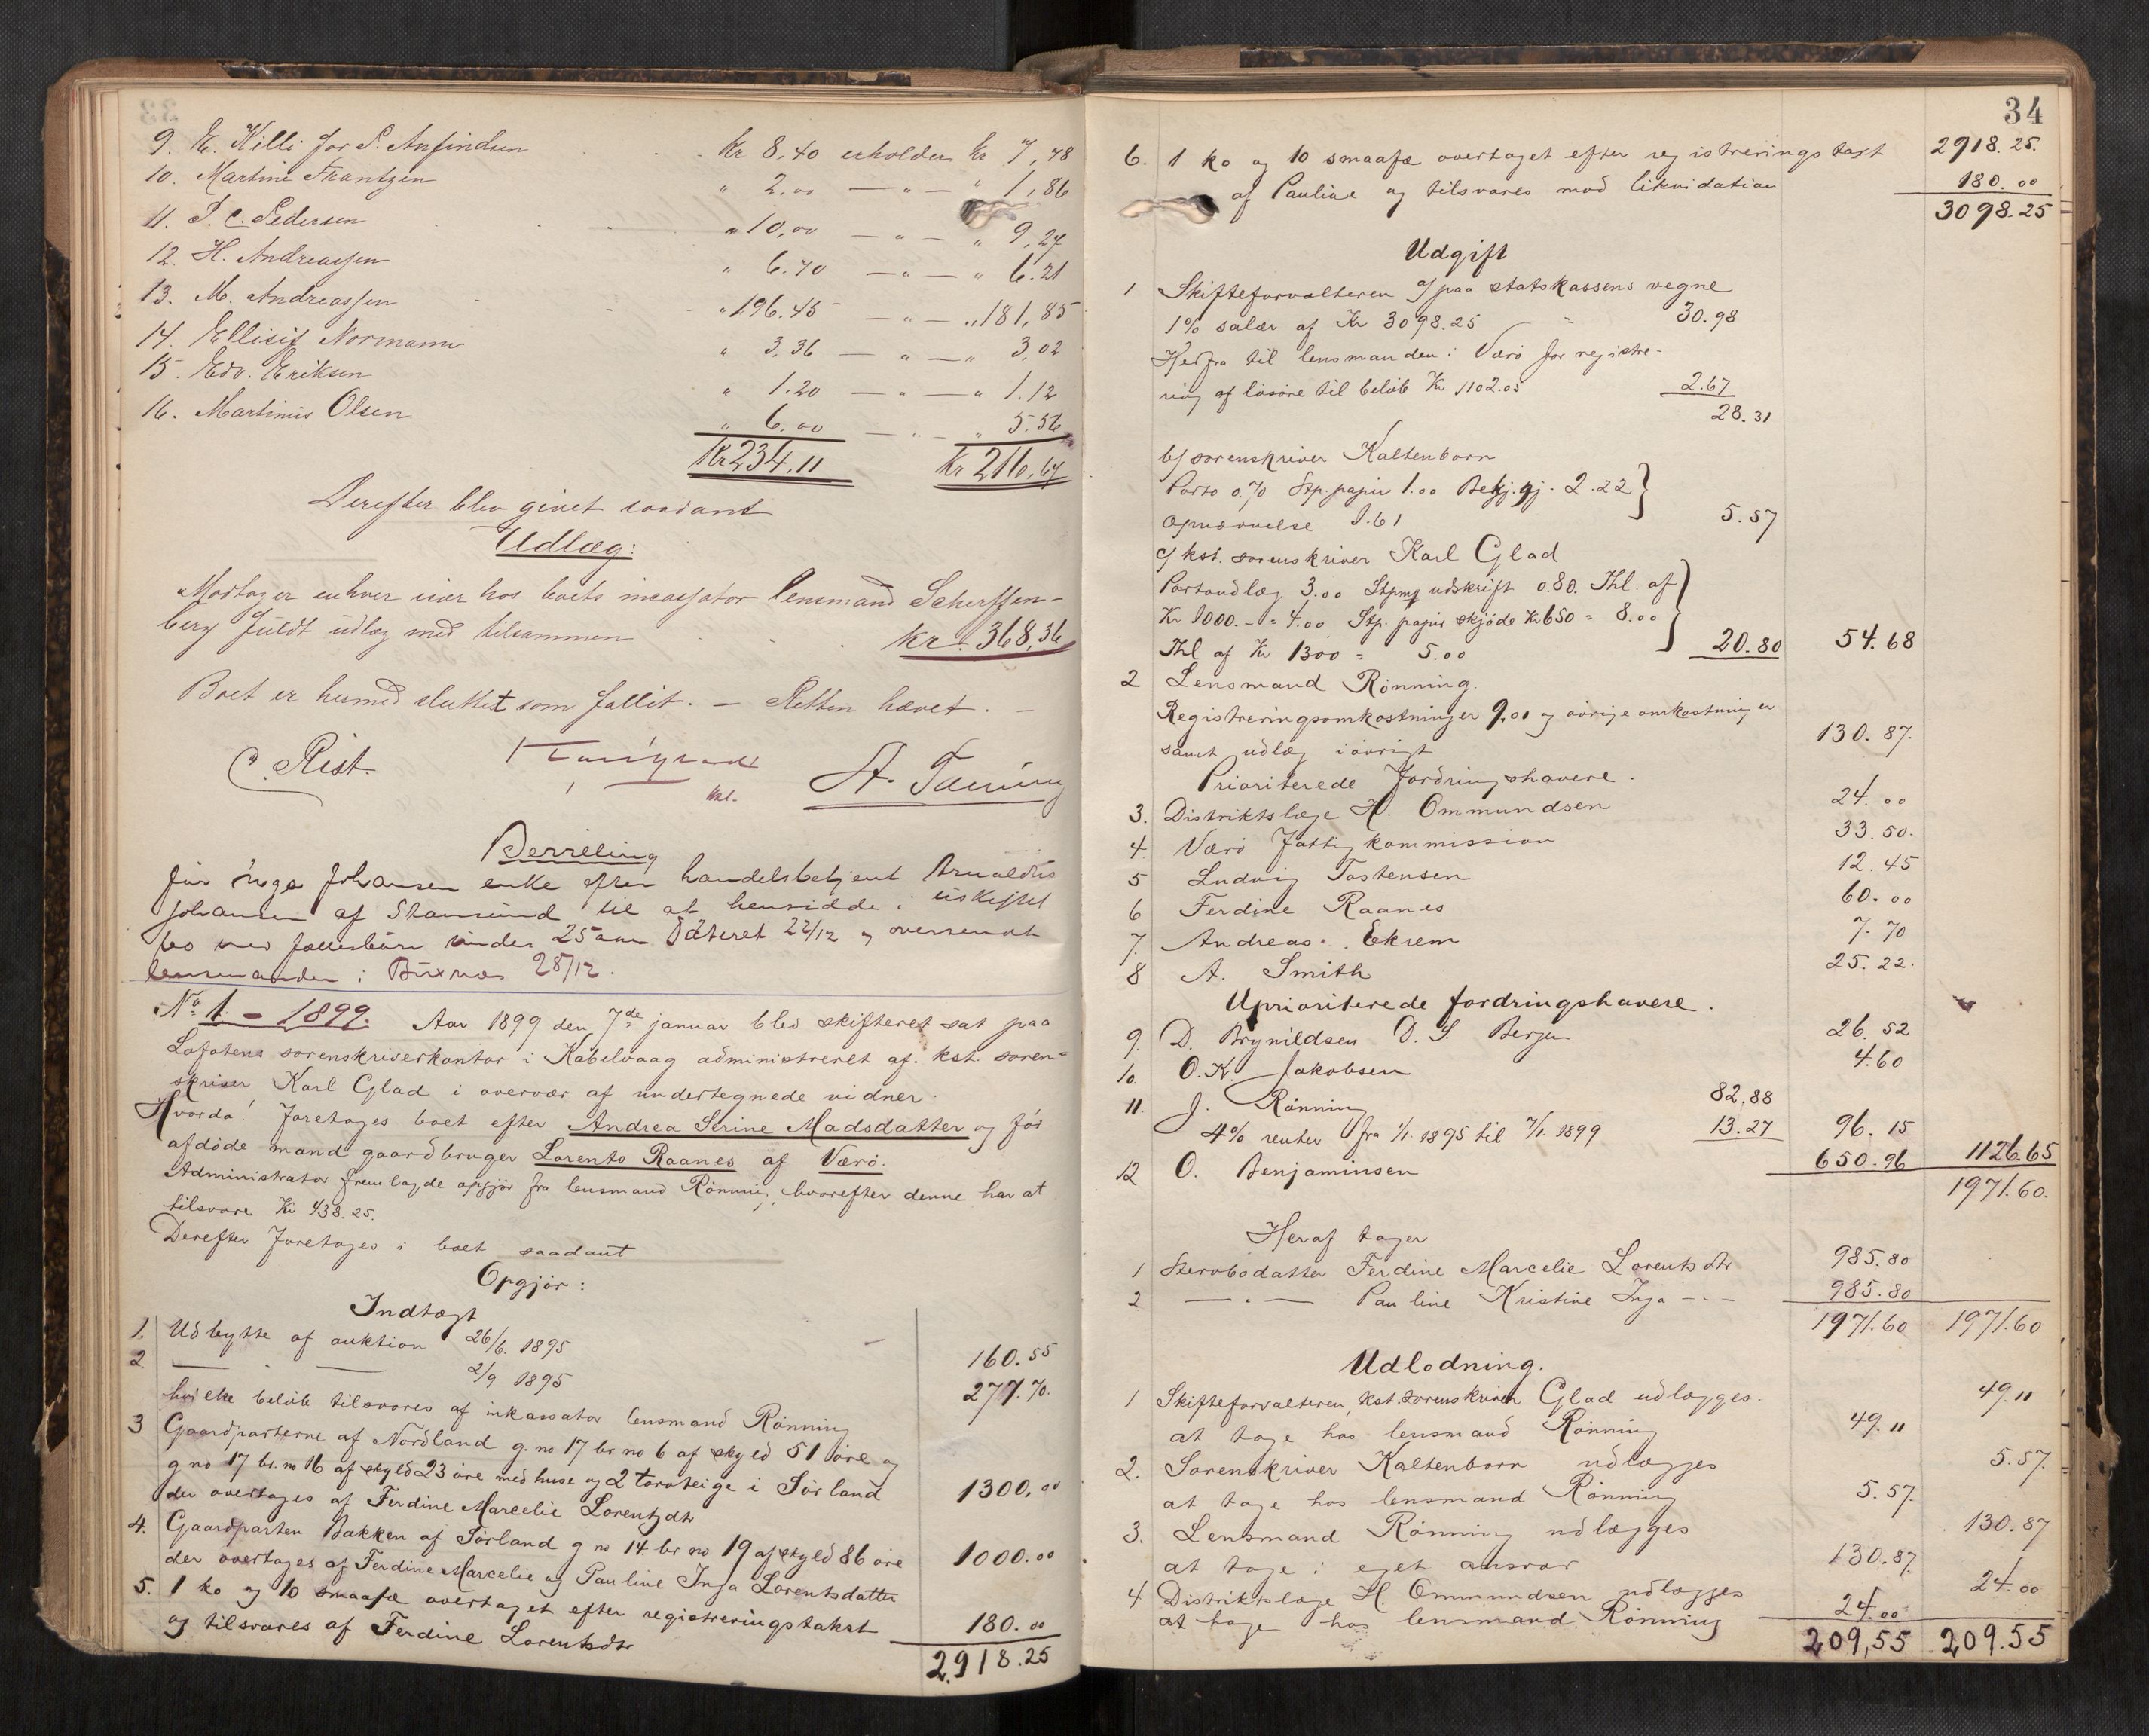 9. E. Killi for S. Anfindsen Kr 8,40 erholder kr 7,78
10. Martine Frantzen " 2.00 — " — " 1,86
11. P. C. Pedersen " 10,00 — " — " 9,27
12. H. Andreassen " 6.70 — " — " 6.21
13. M. Andreassen " 196.45 — " — " 181,85
14. Ellisif Normann " 3,36 — " — " 3,02
15. Edv. Eriksen " 1.20 — " — " 1.12
16. Martinus Olsen " 6.00 — " — " 5.56
Kr 234,11 Kr 216,67
Derefter blev givet saadant
Udlæg:
Modtager enhver især hos boets incassator lensmand Scherffen-
berg fuldt udlæg med tilsammen kr. 368,36
Boet er hermed sluttet som fallit. — Retten hævet. —
C. Rist.
Berreling
for Inga Johansen enke efter handelsbetjent Arnoldus
Johansen af Stamsund til at hensidde i uskiftet
bo med fællesbørn under 25 aar dateret 22/12 og oversendt
lensmanden i Buxnes 28/12.
No 1 - 1899. Aar 1899 den 7de januar blev skifteret sat paa
Lofotens sorenskriverkontor i Kabelvaag administreret af kst. soren-
skriver Karl Glad i overvær af undertegnede vidner.
Hvorda! Foretages boet efter Andrea Serine Madsdatter og før
afdøde mand gaardbruger Lorents Raanes af Værø.
Administrator fremlagde opgjør fra lensmand Rønning, hvorefter denne har at
tilsvare Kr 438.25.
Derefter foretages i boet saadant
Opgjør:
Indtægt
1. Udbytte af auktion 26/6. 1895 160.55
2 — " — 2/9 1895 277.70.
hvilke beløb tilsvares af inkassator lensmand Rønning
3 Gaardparterne af Nordland g. no 17 br no 6 af skyld 51 øre og
g no 17 br. no 16 af skyld 23 øre med huse og 2 torvteige i Sørland
der overtages af Ferdine Marcelie Lorentzdtr 1300,00
4. Gaardparten Bakken af Sørland g no 14 br no 19 af skyld 86 øre
der overtages af Ferdine Marcelie og Pauline Inga Lorentsdatter 1000.00
5. 1 ko og 10 smaafæ overtaget efter registreringstakst
og tilsvares af Ferdine Lorentsdtr 180.00
2918.25
34
2918.25.
6. 1 ko og 10 smaafæ overtaget efter registreringstaxt
af Pauline og tilsvares mod likvidation 180.00
3098.25
Udgift
1 Skifteforvalteren a/ paa statskassens vegne
1% salær af Kr 3098.25 30.98
Herfra til lensmanden i Værø for registre-
ring af løsøre til beløb Kr 1102.05 2.67
28.31
b/ sorenskriver Kaltenborn
Porto 0.70 Stp. papir 1.00 Bekj.gj. 2.22
opnævnelse 1.61 5.57
c/ kst. sorenskriver Karl Glad
Portoudlæg 3.00 Stpmp udskrift 0.80. Thl. af
Kr 1000.- = 4.00 Stp. papir skjøde Kr 650 = 8.00
Thl af Kr 1300 = 5.00 20.80 54.68
2 Lensmand Rønning.
Registreringsomkostninger 9.01 og øvrige omkostninger
samt udlæg i øvrigt 130.87.
Prioriterede fordringshavere.
3. Distriktslæge H. Ommundsen 24.00
4. Værø Fattigkommission 33.50.
5 Ludvig Tostensen 12.45
6 Ferdine Raanes 60.00
7. Andreas Ekrem 7.70
8 A. Smith 25.22.
Uprioriterede fordringshavere.
9. D. Brynildsen D. S. Bergen 26.52
10. O. K. Jakobsen 4.60
11. J. Rønning 82.88
4% renter fra 1/1. 1895 til 7/1. 1899 13.27 96.15
12 O. Benjaminsen 650.96 1126.65
1971.60.
Heraf tager
1 Stervbodatter Ferdine Marcelie Lorentsdtr 985.80
2 — " — Pauline Kristine Inga — " — 985.80
1971.60 1971.60
Udlodning.
1 Skifteforvalteren, kst. sorenskriver Glad udlægges 49.11
at tage hos lensmand Rønning 49.11
2. Sorenskriver Kaltenborn udlægges 5.57.
at tage hos lensmand Rønning 5.57.
3. Lensmand Rønning udlægges 130.87
at tage i eget ansvar 130.87.
4 Distriktslæge H. Ommundsen udlægges 24.00
at tage hos lensmand Rønning 24.00
209,55 209.55